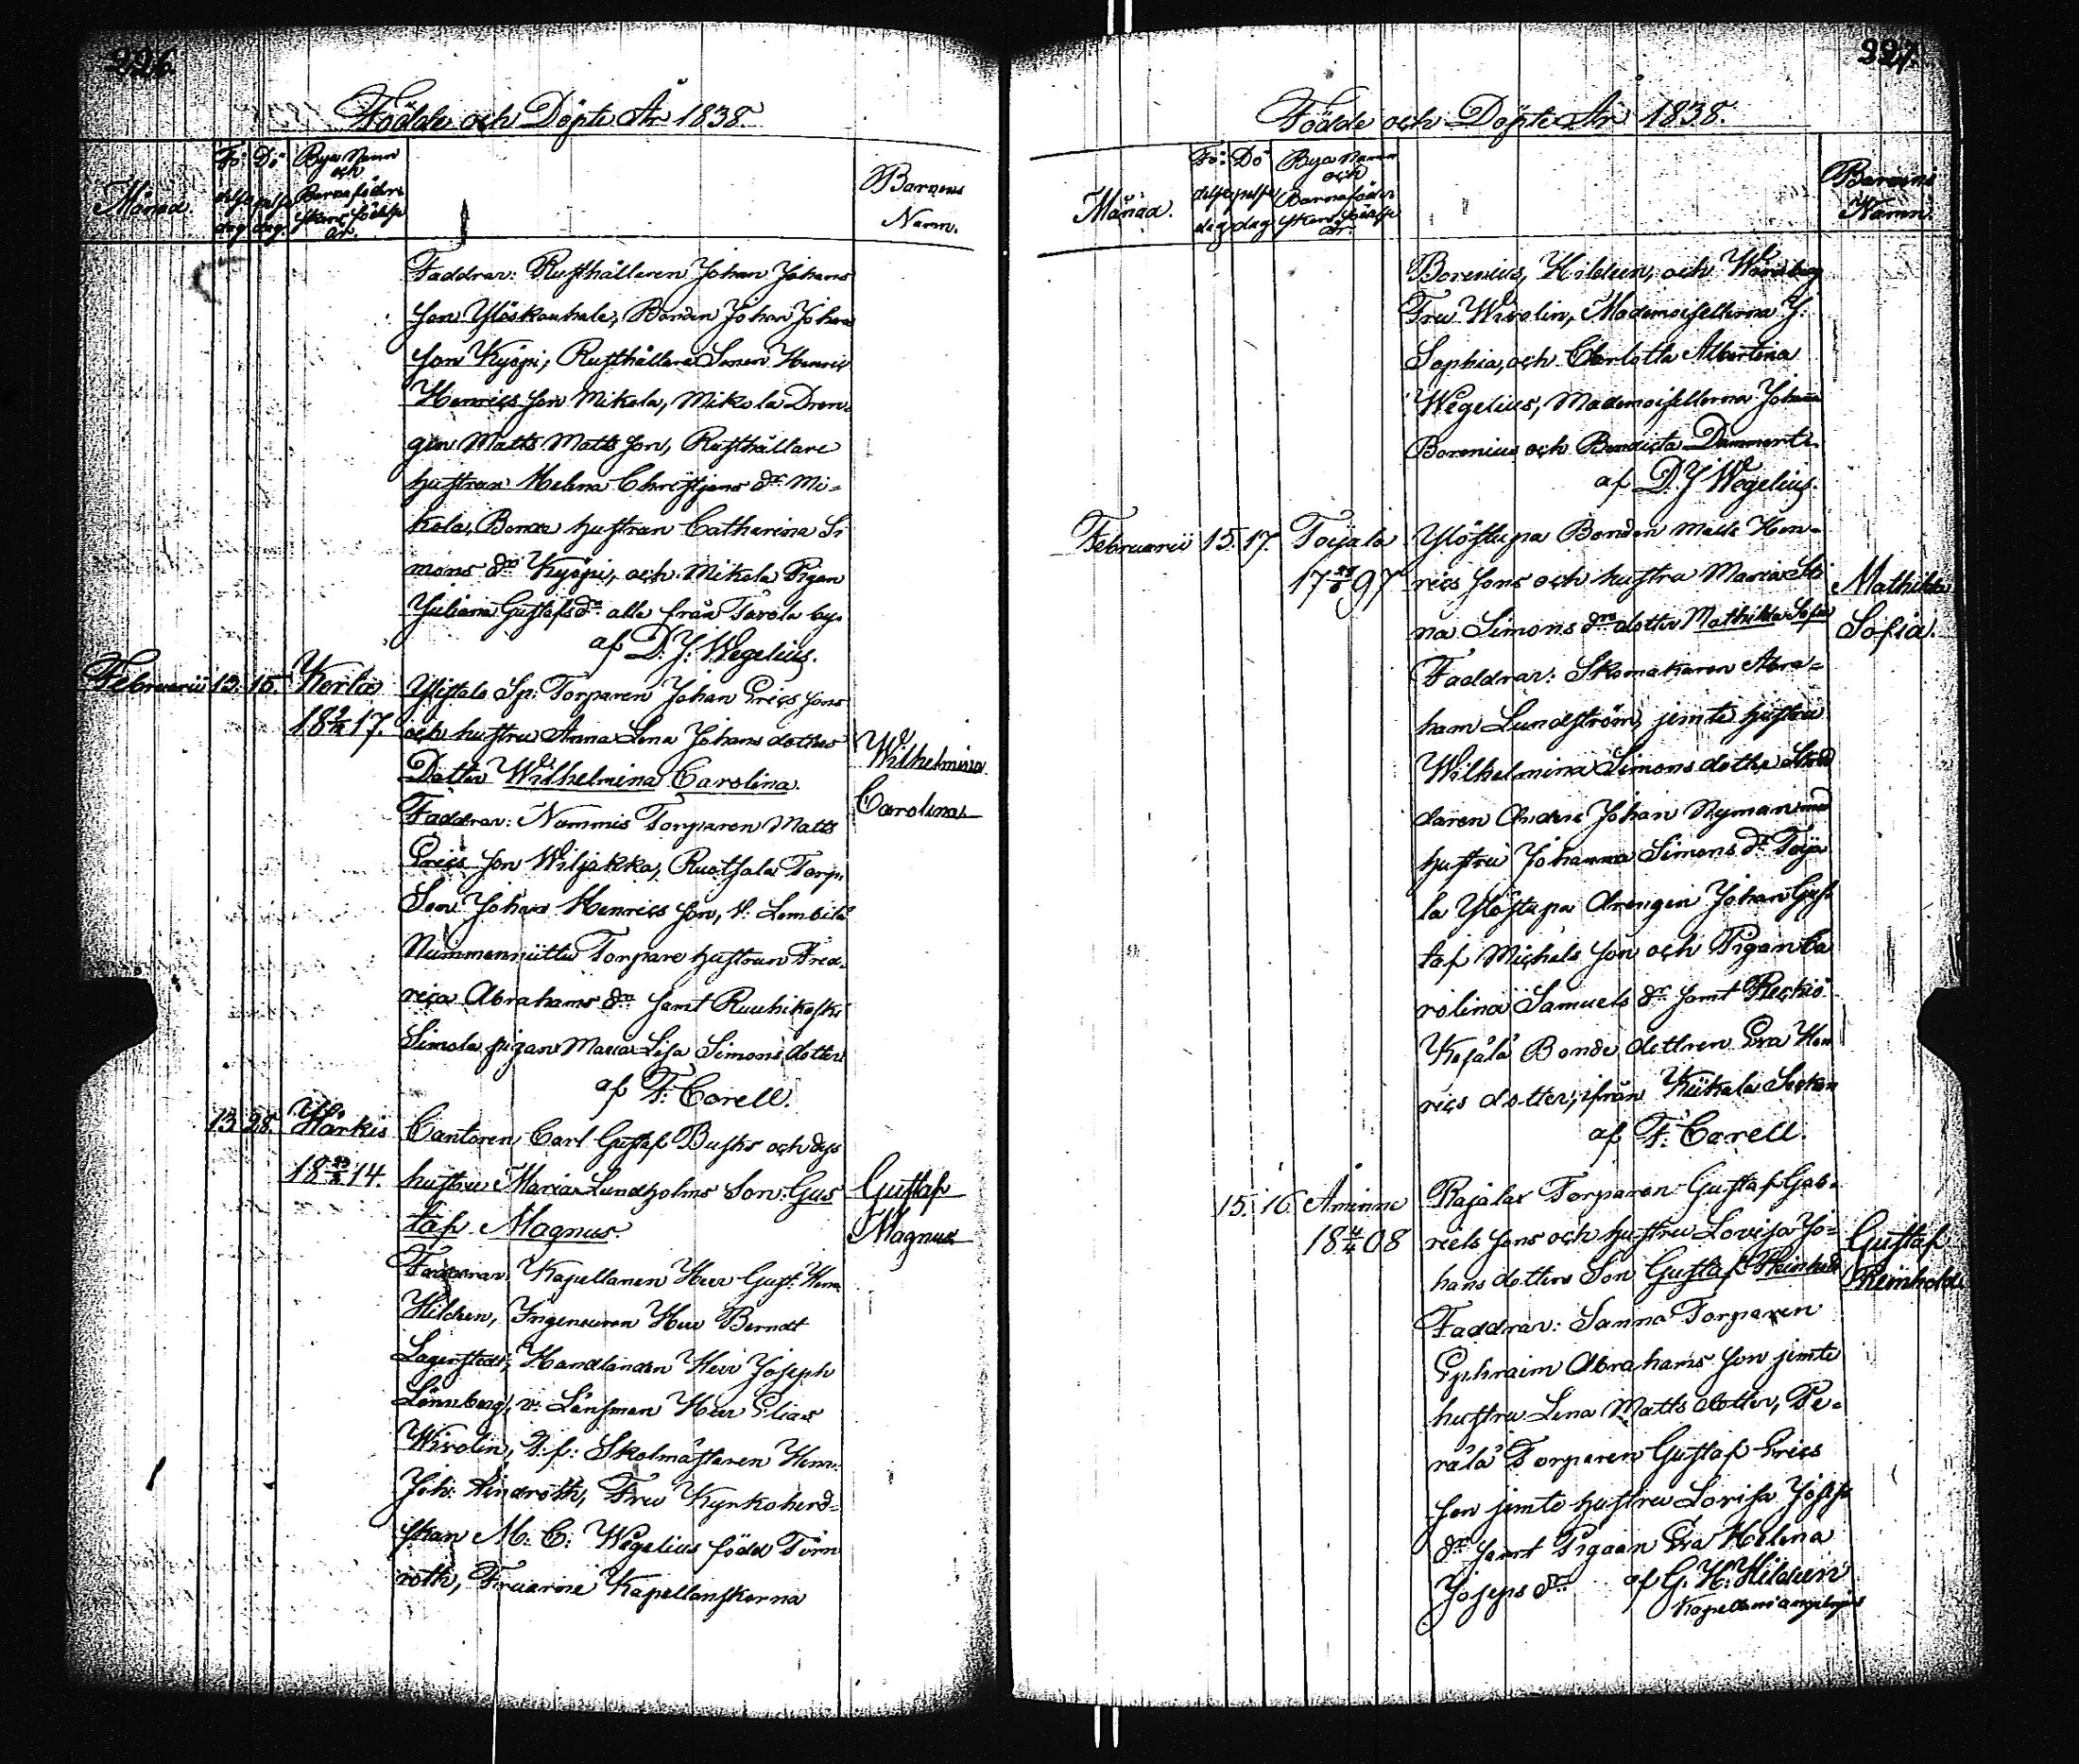 226.
Födde och Döpte År 1838.
Månad.
Fö
delse
dag
Dö
pelse
dag.
Bya Namn
och
Barnaföder
skans födelse
år.
Barnens
Namn.
Faddrar: Rusthållaren Johan Johans
son Yliskouhale, Bonden Johan Johans
son Kyöpi, Rusthållare Sonen Henric
Henrics son Mikola, Mikola Dren-
gen Matts Matts son, Rusthållare
hustrun Helena Christjans dr Mi-
kola, Bonde hustrun Catharina Si
mons dr Kyöpi, och Mikola Pigan
Juliana Gustafs dr alla från Tavola by.
af D. J. Wegelius.
Februarii 13. 15. Kerla Ylistalo Sp: Torparen Johan Erics sons
18 17. och hustru Anna Lena Johans dotters
Dotter Wilhelmina Carolina.
Wilhelmina
Carolina
Faddrar: Nummis Torparen Matts
Erics son Wiljakka, Ruotsala Torp.
Son Johan Henrics son, V. Lembilä
Nummenniittu Torpare hustrun Fred-
rica Abrahams dr samt Ruuhikoski
Simola pigan Maria Lisa Simons dotter
af F. Corell.
13 28. Härkis Cantoren Carl Gustaf Buschs och dess
18 14. hustru Maria Lundholms Son: Gus
taf Magnus.
Gustaf
Magnus
Faddrar: Kapellanen Herr Gust. Hen
Hilden, Ingeneuren Herr Berndt
Lagerstedt, Handlanden Herr Joseph
Lönnberg, v. Länsman Herr Elias
Wirolin, T. f. Skolmästaren Herr
Joh: Lindroth, Fru Kyrkoherd-
skan M. C. Wegelius född Törn
roth, Fruarne Kapellanskorna
227.
Födde och Döpte År 1838.
Månad.
Fö:
delse
dag
Dö
pelse
dag
Bya Namn
och
Barnaföder
skans födelse
år.
Barnens
Namn.
Borenius, Hilden, och
Fru Wirolin, Mademoisellerna J:
Sophia, och Charlotta Albertina
Wegelius, Mademoisellerna Johanna
Borenius och Bendicta Dammert.
af D. J Wegelius.
Februarii 15. 17. Toijala Ylöstupa Bonden Matts Hen-
17 97 rics sons och hustru Maria Sti
na Simons drs dotter Mathilda Sofia
Mathilda
Sofia.
Faddrar: Skomakaren Abra-
ham Lundström, jemte hustru
Wilhelmina Simons dotter Skräd
daren Anders Johan Nyman med
hustru Johanna Simons dr Toija
la Ylöstupa drengen Johan Gus
taf Michels son och Pigan Ca
rolina Samuels dr samt Reckiö
Kejälä Bonde dottren Eva Hen
rics dotter, ifrån Kiikala Socken
af F. Corell.
15. 16. Aminne Rajalax Torparen Gustaf Gab-
18 08 riels sons och hustru Lovisa Jo-
hans dotters Son Gustaf Reinhold
Gustaf
Reinhold.
Faddrar: Sanna Torparen
Ephraim Abrahams son jemte
hustru Lena Matts dotter, Pe-
rälä Torparen Gustaf Erics
son jemte hustru Lovisa Josephs
dr samt Pigan Eva Helena
Joseps dr af G. H. Hilden